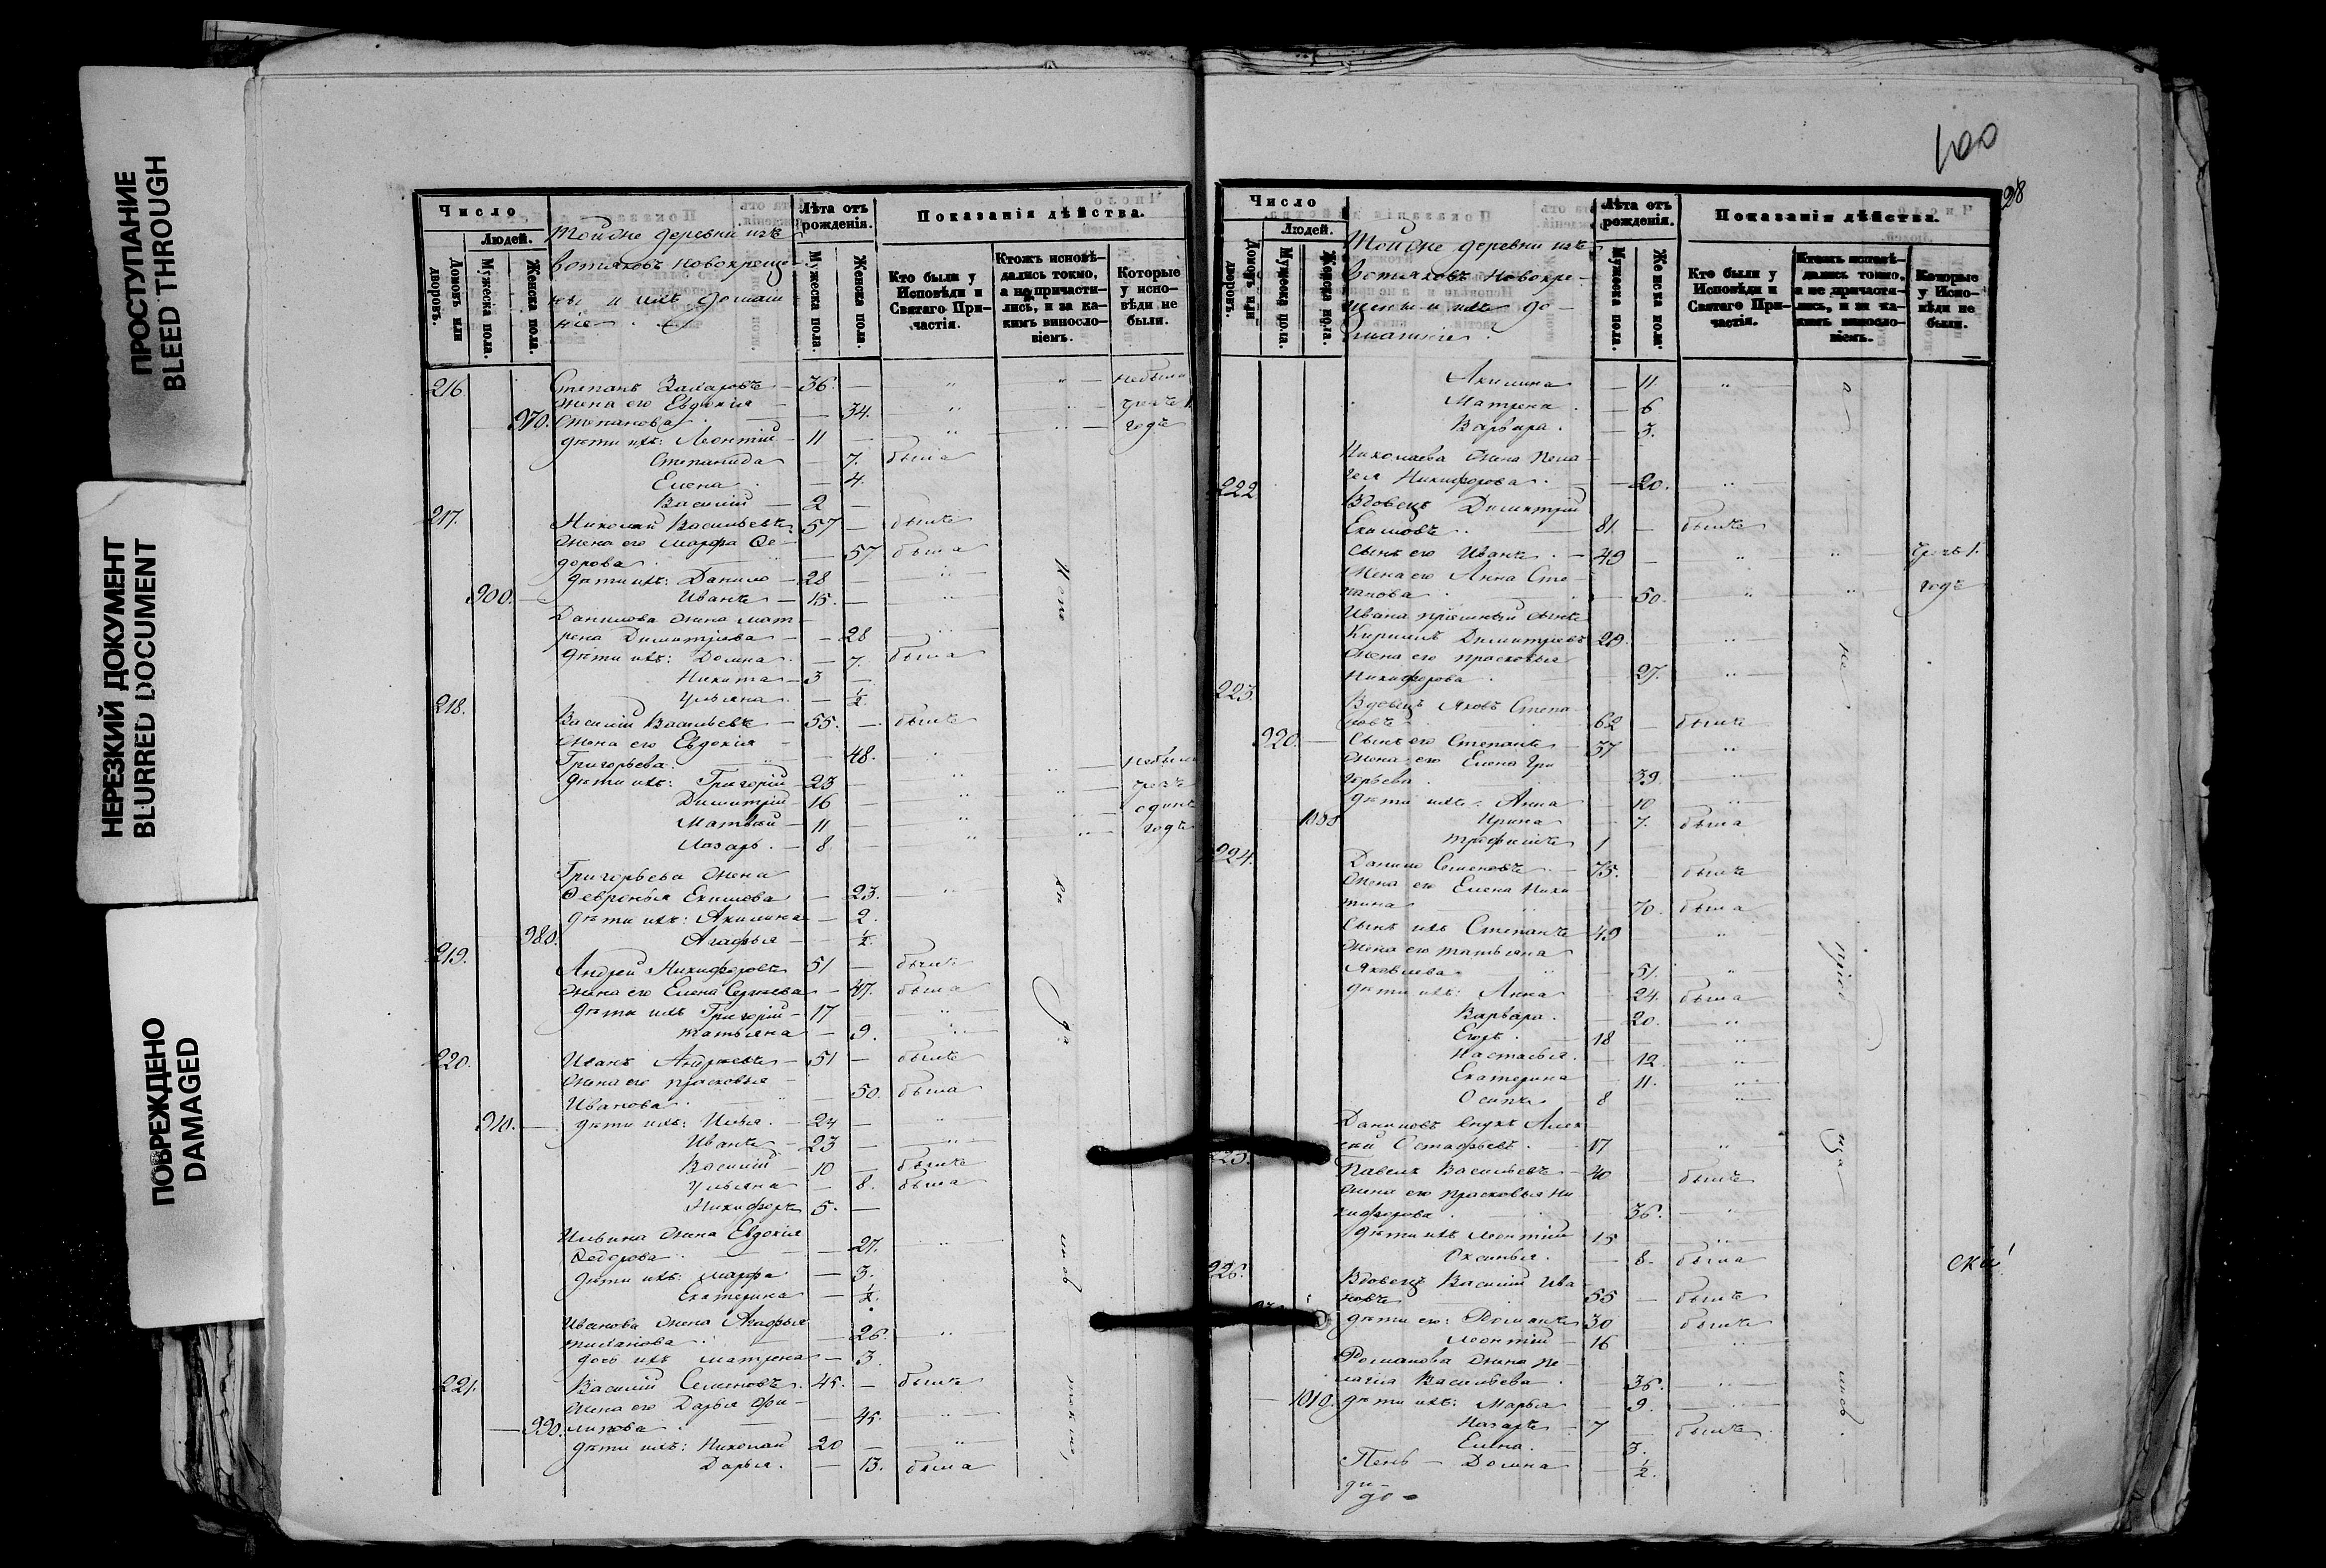 ПРОСТУПАНИЕ
BLEED THROUGH
НЕРЕЗКИЙ ДОКУМЕНТ
BLURRED DOCUMENT
ПОВРЕЖДЕНО
DAMAGED
Число
Людей.
Домовъ или дворовъ.
Мужеска пола.
Женска пола.
Тойже деревни изъ
вотяковъ новокреще-
ны и ихъ домаш
ніе
Лѣта отъ рожденія.
Мужеска пола.
Женска пола.
Показанія дѣйства.
Кто были у Исповѣди и Святаго Причастія.
Ктожъ исповѣдались токмо, а не причастились, и за какимъ винословіемъ.
Которые у исповѣди не были.
216. Степанъ Захаровъ 36. небыли
жена его Евдокія
970. Степанова 34. чрезъ 1
дѣти ихъ: Леонтій 11 годъ
Степанида 7. была
Елена 4.
Василій 2
217. Николай Васильевъ 57 былъ
жена его Марфа Ѳе-
дорова 57 была
дѣти ихъ: Данило 28
900. Иванъ 15.
Данилова жена Мат
рена Димитріева 28
дѣти ихъ: Домна 7. была
Никита 3
Ульяна 1/2
218. Василій Васильевъ 55. былъ
жена его Евдокія
Григорьева 48.
дѣти ихъ: Григорій 23 небыли
Димитрій 16 чрезъ
Матвѣй 11 одинъ
Лазарь 8 годъ
Григорьева жена
Февронья Екимова 23.
дѣти ихъ: Акилина 2.
980. Агафья 1/2
219. Андрей Никифоровъ 51 былъ
жена его Елена Сергѣева 47. была
дѣти ихъ Григорій 17
Татьяна 9.
220. Иванъ Андреевъ 51 былъ
жена его Прасковья
Иванова 50. была
910. дѣти ихъ: Илья 24
Иванъ 23
Василій 10 былъ
Ульяна 8. была
Никифоръ 5.
Ильина жена Евдокія
Ѳедорова 27.
дѣти ихъ: Марфа 3.
Екатерина 1/2.
Иванова жена Агафья
26.
дочь ихъ Матрена 3.
221. Василій Семеновъ 45. былъ
жена его Дарья Фи-
990. липова 45.
дѣти ихъ: Николай 20
Дарья 13. была
100
98
Число
Людей.
Домовъ или дворовъ.
Мужеска пола.
Женска пола.
Тойже деревни изъ
вотяковъ новокре-
щены и ихъ до-
машніе.
Лѣта отъ рожденія.
Мужеска пола.
Женска пола.
Показанія дѣйства.
Кто были у Исповѣди и Святаго Причастія.
Ктожъ исповѣдались токмо, а не причастились, и за какимъ винословіемъ.
Которые у Исповѣди не были.
Акилина 11.
Матрена 6
Варвара 3.
Николаева жена Пела
гея Никифорова 20.
222 Вдовецъ Димитрій
Екимовъ 81. былъ
сынъ его Иванъ 49 чрезъ 1.
жена его Анна Сте-
панова 50. годъ
Ивана пріемный сынъ
Кирилъ Димитріевъ 29.
жена его Прасковья
Никифорова 27.
223. Вдовецъ Яковъ Степа
новъ 62 былъ
920. сынъ его Степанъ 37
жена его Елена Гри
горьева 39.
дѣти ихъ: Анна 10
1000 Ирина 7. была
Трофимъ 1
224. Данило Семеновъ 75. былъ
жена его Елена Ники
тина 70. была
сынъ ихъ Степанъ 49
жена его Татьяна
Яковлева 51.
дѣти ихъ: Анна 24. была
Варвара 20.
Егоръ 18
Настасья 12
Екатерина 11.
Осипъ 8
Даниловъ внукъ Алек
сѣй Остафьевъ 17
225. Павелъ Васильевъ 40 былъ
жена его Прасковья Ни
кифорова 36.
дѣти ихъ Леонтій 15
Оксинья 8 была
226. Вдовецъ Василій Ива
новъ 55 былъ
дѣти его: Романъ 30 былъ
Леонтій 16
Романова жена Пе-
лагія Васильева 36.
1010. дѣти ихъ: Марья 9.
Назаръ 7 былъ
Елена 3.
Домна 1/2.